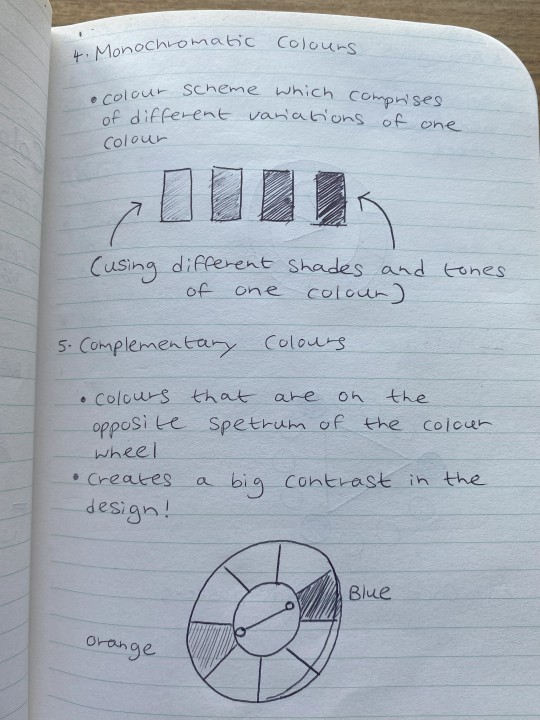 4. Monochromatic Colours
• colour scheme which comprises
of different variations of one
colour
(using different shades and tones
of one colour)
5. Complementary Colours
• colours that are on the
opposite spetrum of the colour
wheel
• creates a big contrast in the
design!
Blue
orange